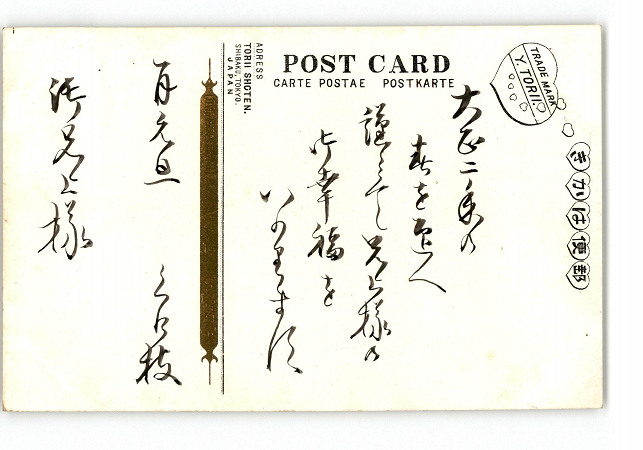 POST CARD
CARTE POSTAE POSTKARTE
TRADE MARK
Y. TORII.
ADRESS
TORII SHOTEN.
SHIBAKU, TOKYO.
JAPAN
きかは便郵
大正二年の
春を迎へ
謹みて兄上様の
御幸福を
いのります
一月元旦
枝
御兄上様